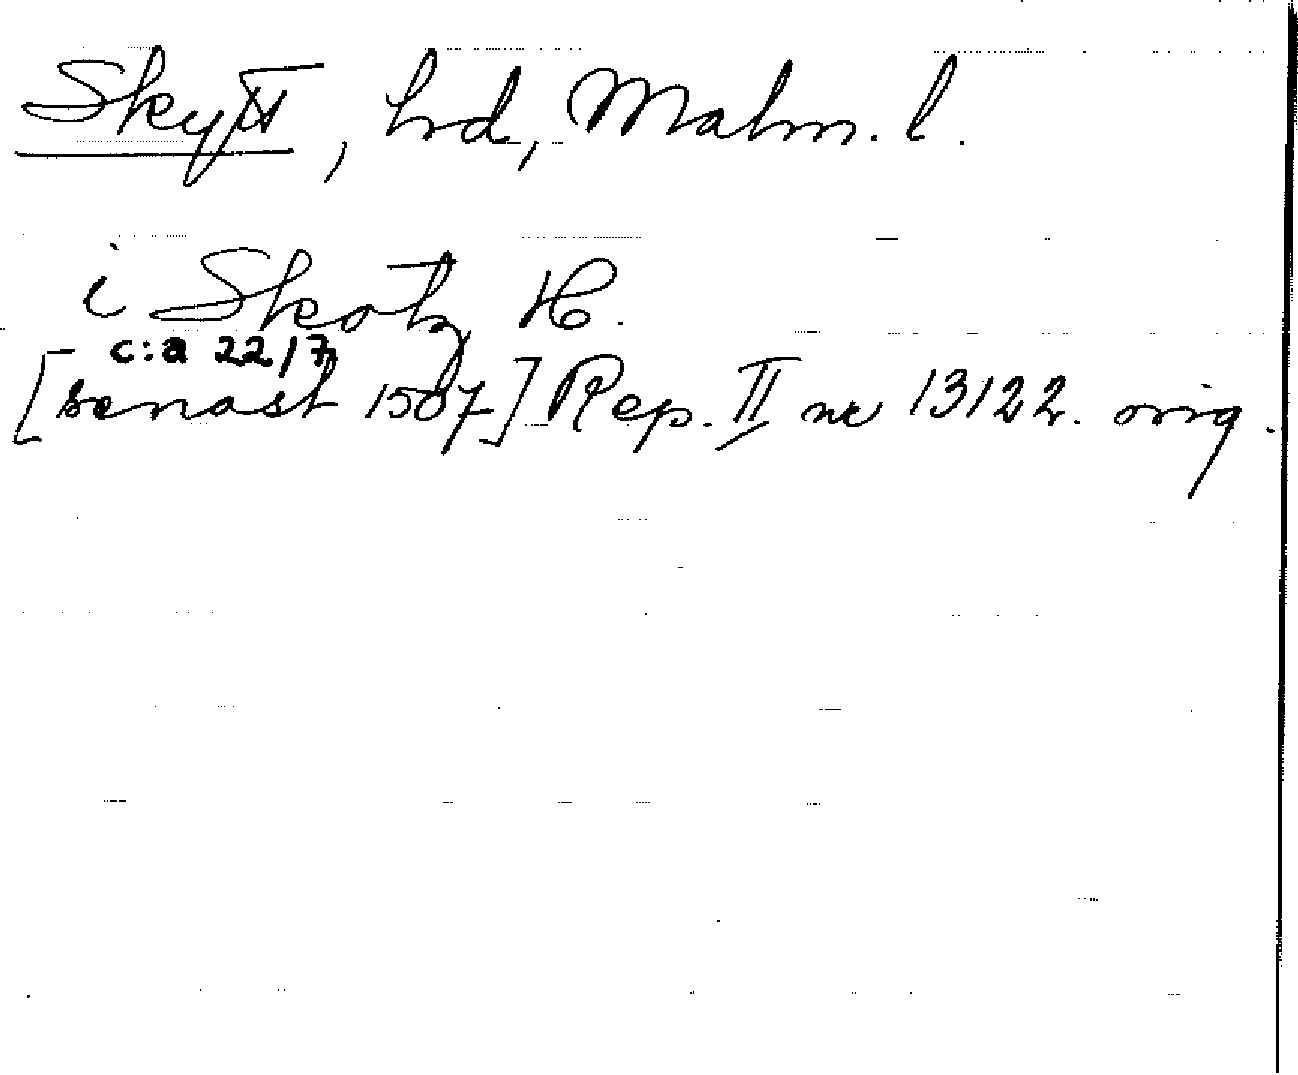 Skytt, hd, Malm. l.
i Skotz H.
c:a 22/7
[senast 1507] Rep. II nr 13122. orig.